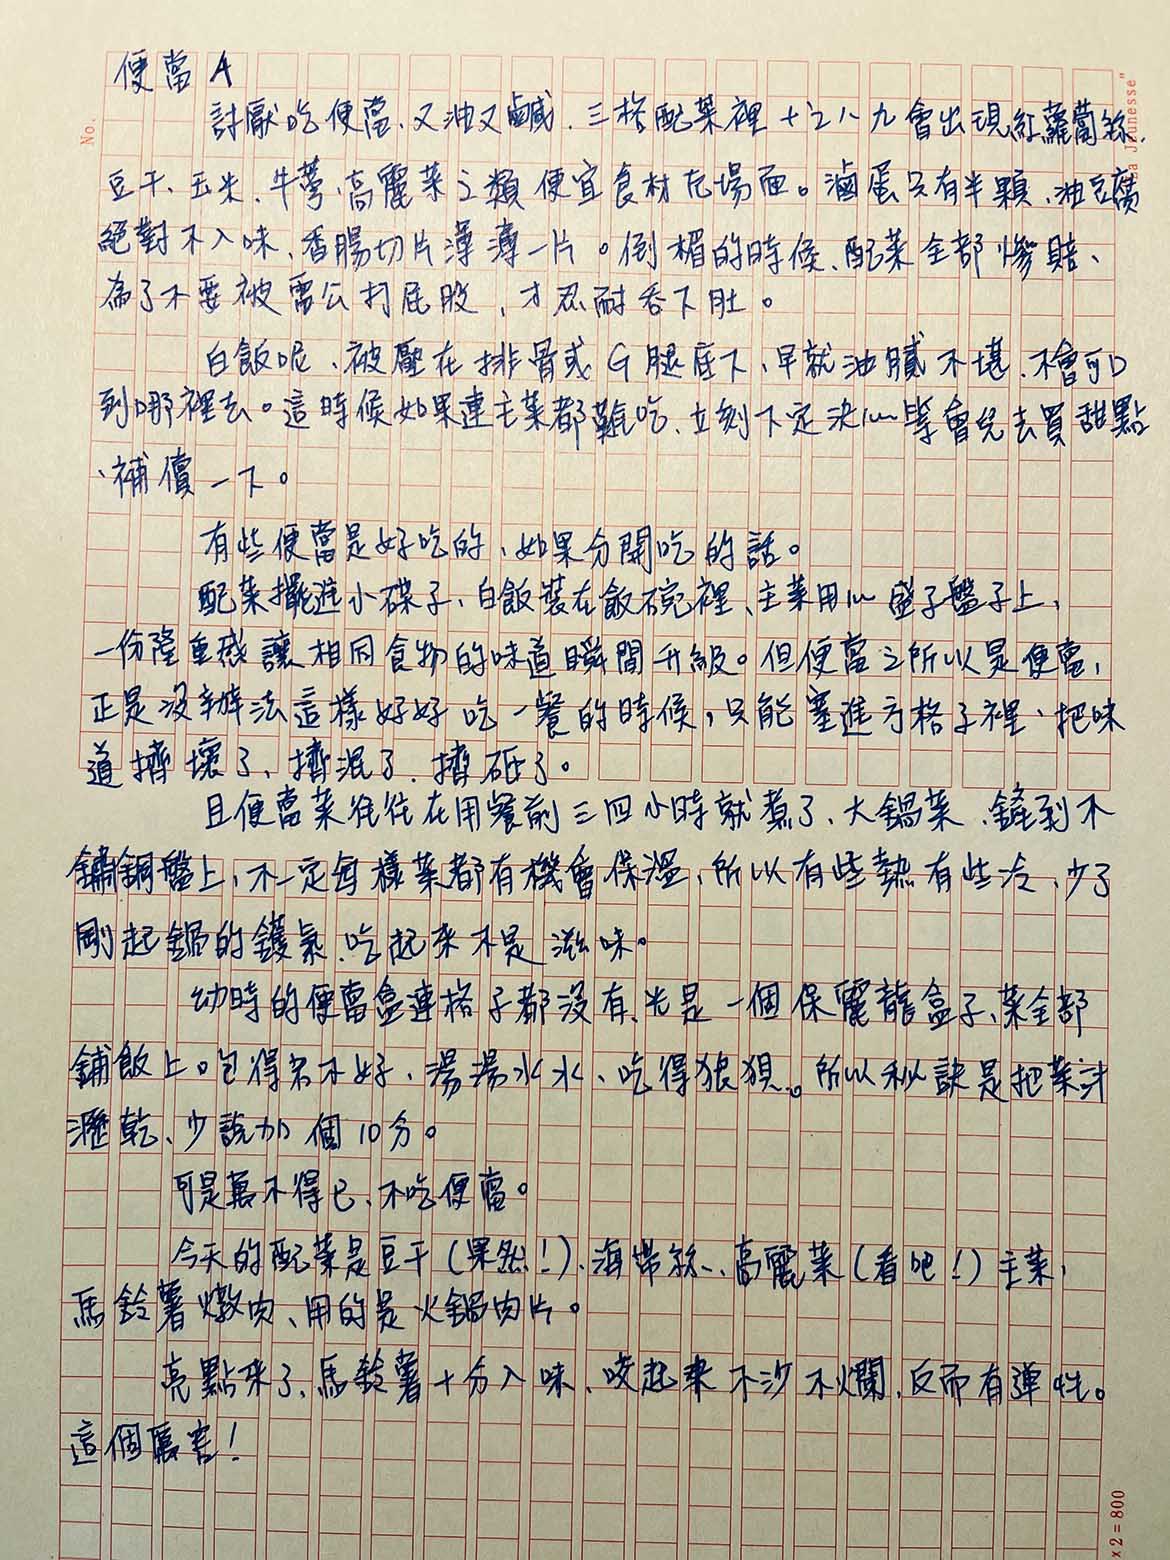 No.
La Jeunesse"
便當A
討厭吃便當、又油又鹹、三格配菜裡十之八九會出現紅蘿蔔絲、
豆干、玉米、牛蒡、高麗菜之類便宜食材充場面。滷蛋只有半顆、油豆腐
絕對不入味、香腸切片薄薄一片。倒楣的時候、配菜全部慘賠、
為了不要被雷公打屁股，才忍耐吞下肚。
白飯呢、被壓在排骨或G腿底下、早就油膩不堪、不會可口
到哪裡去。這時候如果連主菜都難吃、立刻下定決心等會兒去買甜點
、補償一下。
有些便當是好吃的、如果分開吃的話。
配菜擺進小碟子、白飯裝在飯碗裡、主菜用心盛了盤子上，
一份隆重感讓相同食物的味道瞬間升級。但便當之所以是便當，
正是沒辦法這樣好好吃一餐的時候，只能塞進方格子裡、把味
道擠壞了、擠混了、擠砸了。
且便當菜往往在用餐前三四小時就煮了、大鍋菜、鏟到不
鏽鋼盤上，不一定每樣菜都有機會保溫，所以有些熱有些冷、少了
剛起鍋的鑊氣、吃起來不是滋味。
幼時的便當盒連格子都沒有、光是一個保麗龍盒子、菜全部
鋪飯上。包得若不好、湯湯水水、吃得狼狽。所以秘訣是把菜汁
瀝乾、少說加個10分。
可是萬不得已、不吃便當。
今天的配菜是豆干(果然!)、海帶絲、高麗菜(看吧!)主菜，
馬鈴薯燉肉、用的是火鍋肉片。
亮點來了、馬鈴薯十分入味、咬起來不沙不爛、反而有彈性。
這個厲害!
x 2 = 800